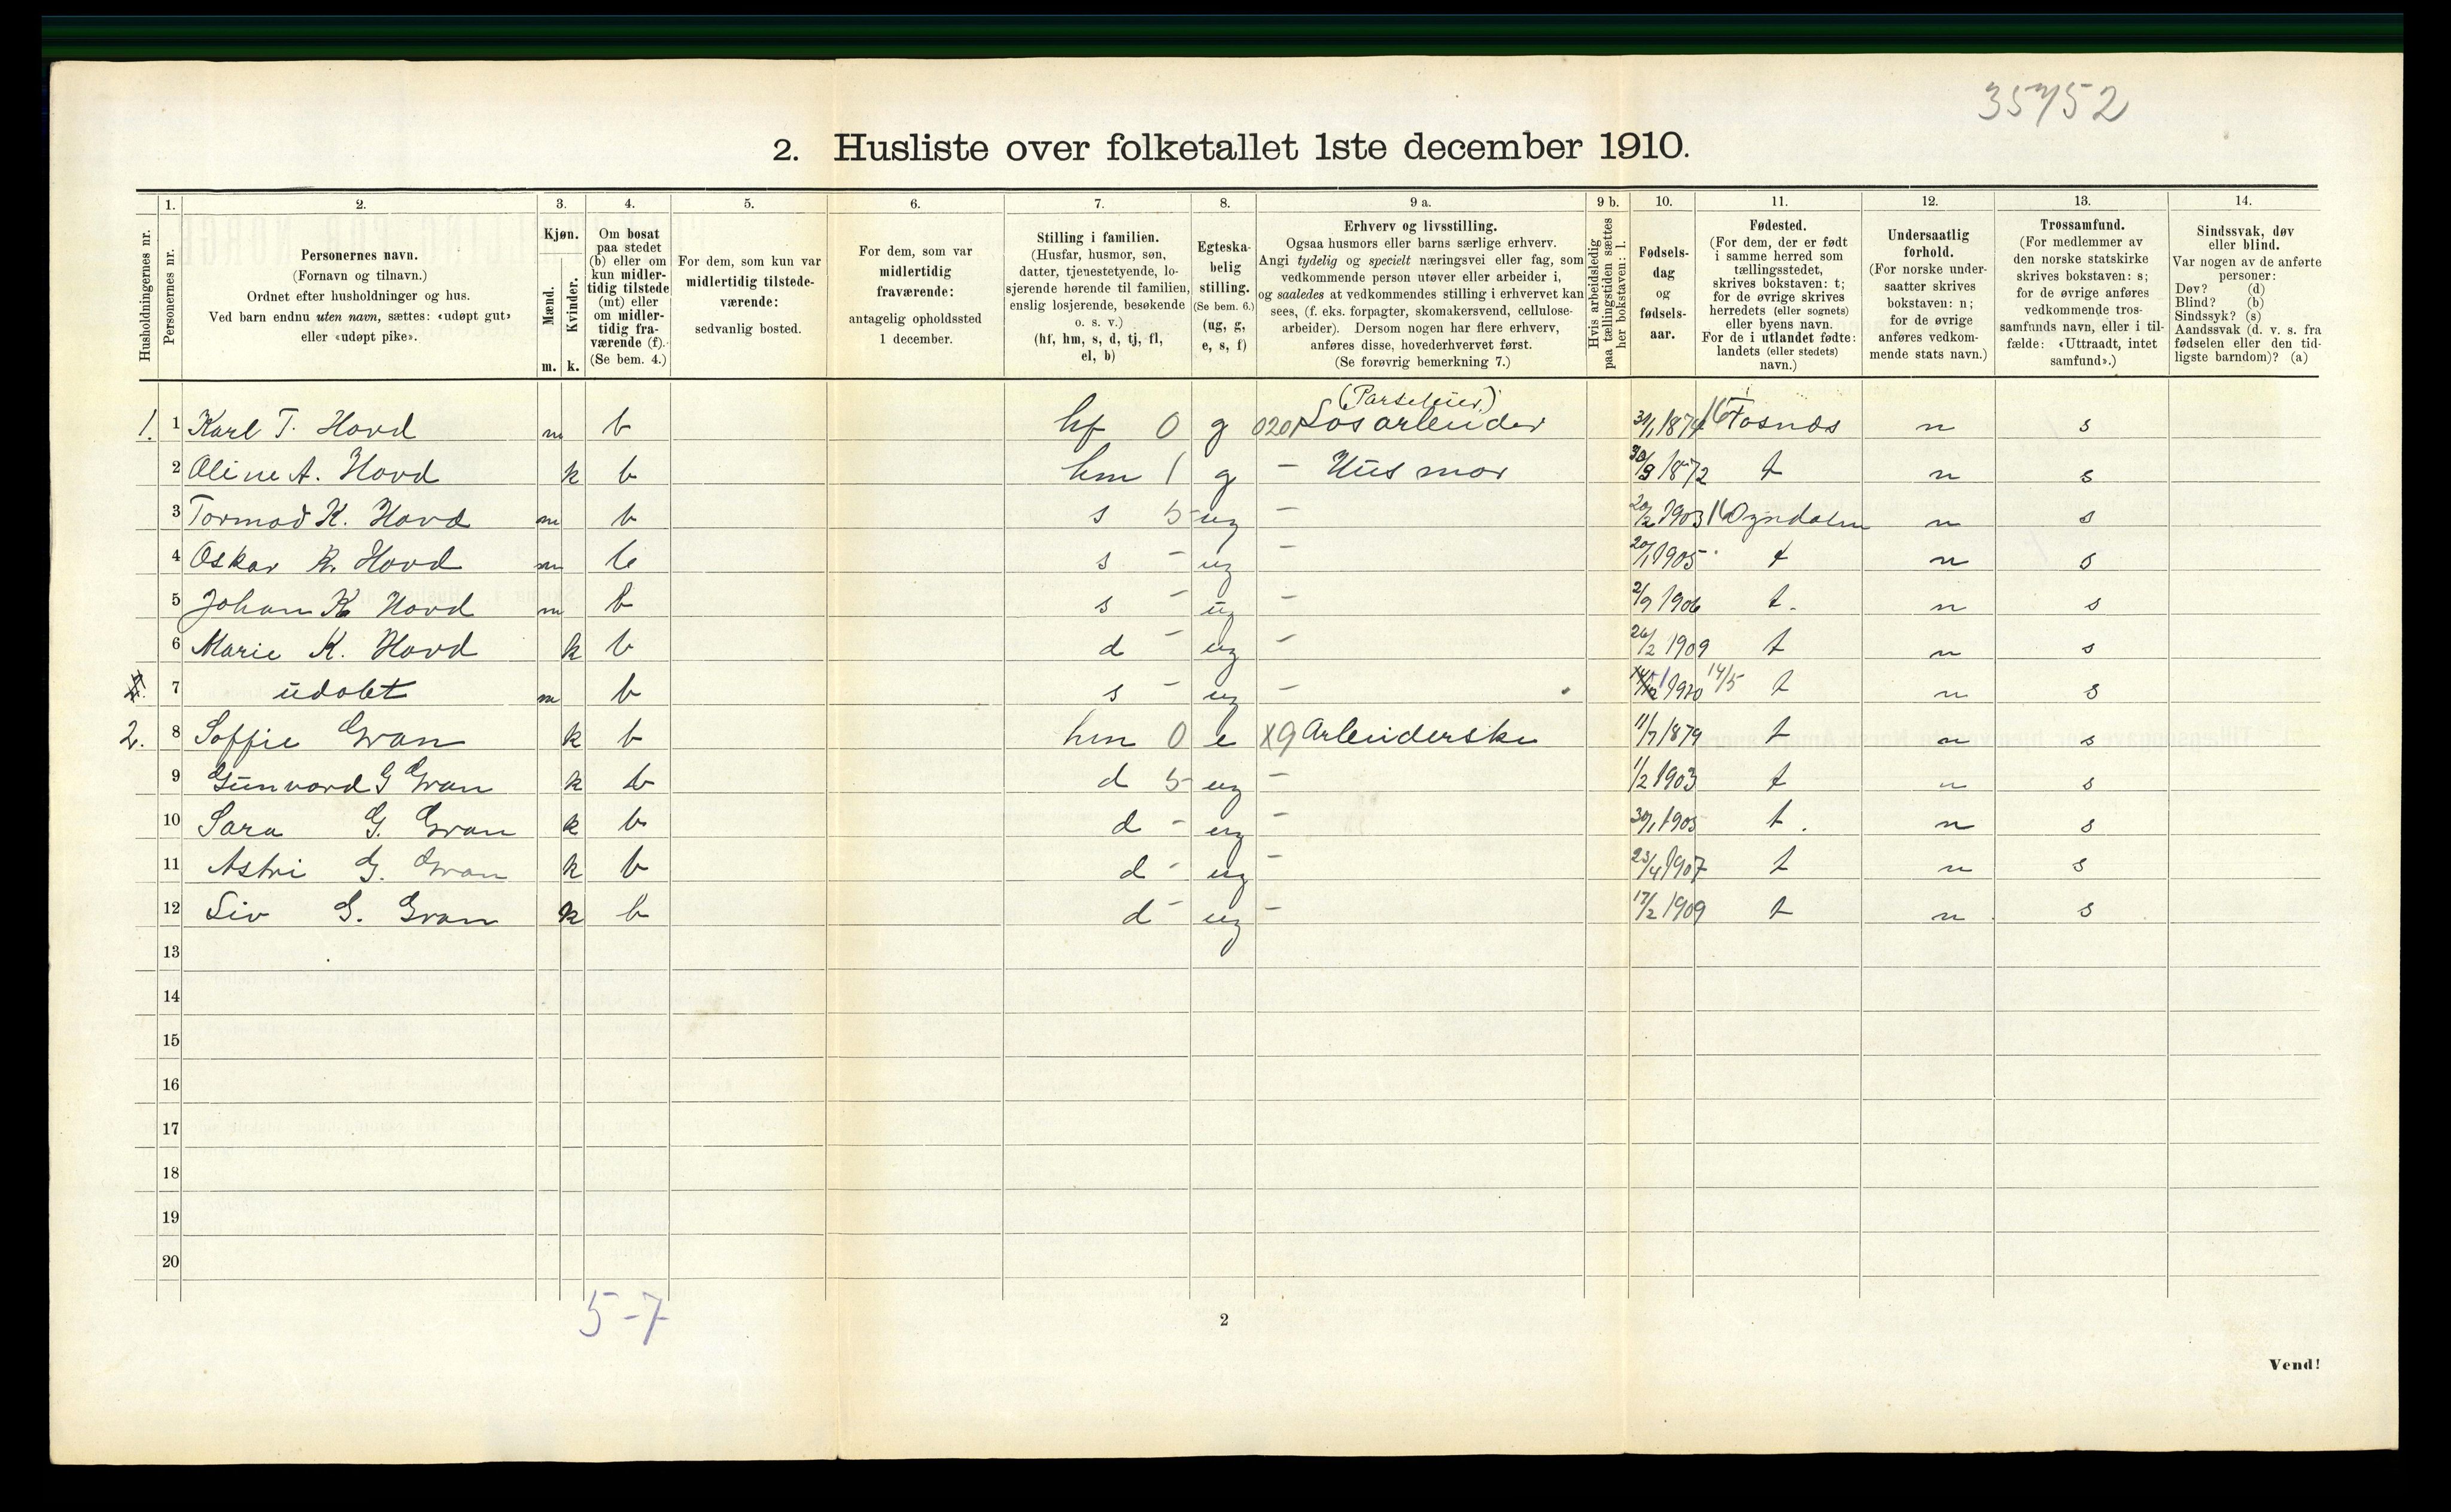 35752
2. Husliste over folketallet 1ste december 1910.
Husholdningernes nr.
1. Personernes nr.
2. Personernes navn.
(Fornavn og tilnavn.)
Ordnet efter husholdninger og hus.
Ved barn endnu uten navn, sættes: «udøpt gut»
eller «udøpt pike».
3. Kjøn.
Mænd. Kvinder.
m. k.
4. Om bosat
paa stedet
(b) eller om
kun midler-
tidig tilstede
(mt) eller
om midler-
tidig fra-
værende (f).
(Se bem. 4.)
5. For dem, som kun var
midlertidig tilstede-
værende:
sedvanlig bosted.
6. For dem, som var
midlertidig
fraværende:
antagelig opholdssted
1 december.
7. Stilling i familien.
(Husfar, husmor, søn,
datter, tjenestetyende, lo-
sjerende hørende til familien,
enslig losjerende, besøkende
o. s. v.)
(hf, hm, s, d, tj, fl,
el, b)
8. Egteska-
belig
stilling.
(Se bem. 6.)
(ug, g,
e, s, f)
9 a. Erhverv og livsstilling.
Ogsaa husmors eller barns særlige erhverv.
Angi tydelig og specielt næringsvei eller fag, som
vedkommende person utøver eller arbeider i,
og saaledes at vedkommendes stilling i erhvervet kan
sees, (f. eks. forpagter, skomakersvend, cellulose-
arbeider). Dersom nogen har flere erhverv,
anføres disse, hovederhvervet først.
(Se forøvrig bemerkning 7.)
9 b. Hvis arbeidsledig
paa tællingstiden sættes
her bokstaven: l.
10. Fødsels-
dag
og
fødsels-
aar.
11. Fødested.
(For dem, der er født
i samme herred som
tællingsstedet,
skrives bokstaven: t;
for de øvrige skrives
herredets (eller sognets)
eller byens navn.
For de i utlandet fødte:
landets (eller stedets)
navn.)
12. Undersaatlig
forhold.
(For norske under-
saatter skrives
bokstaven: n;
for de øvrige
anføres vedkom-
mende stats navn.)
13. Trossamfund.
(For medlemmer av
den norske statskirke
skrives bokstaven: s;
for de øvrige anføres
vedkommende tros-
samfunds navn, eller i til-
fælde: «Uttraadt, intet
samfund».)
14. Sindssvak, døv
eller blind.
Var nogen av de anførte
personer:
Døv? (d)
Blind? (b)
Sindssyk? (s)
Aandssvak (d. v. s. fra
fødselen eller den tid-
ligste barndom)? (a)
(Parseleier)
1. 1 Karl T. Hovd m b hf 0 g 020 Løsarbeider 31/1 1874 16 Fosnæs n s
2 Oline A. Hovd k b hm 1 g - Husmor 30/9 1872 t n s
3 Tormod K. Hovd m b s 5 ug - 20/2 1903 16 Ogndalen n s
4 Oskar K. Hovd m b s - ug - 20/1 1905 t n s
5 Johan K Hovd m b s - ug - 2/9 1906 t. n s
6 Marie K. Hovd k b d - ug - 26/2 1909 t n s
7 udøbt m b s - ug - 1910 14/5 t n s
2. 8 Soffie Gran k b hm 0 e x9 Arbeiderske 11/7 1879 t n s
9 Gunvord G Gran k b d 5 ug - 1/2 1903 t n s
10 Sara G. Gran k b d - ug - 30/1 1905 t. n s
11 Astri G. Gran k b d - ug - 23/4 1907 t n s
12 Liv G. Gran k b d - ug - 17/2 1909 t n s
13
14
15
16
17
18
19
20
5-7
2
Vend!